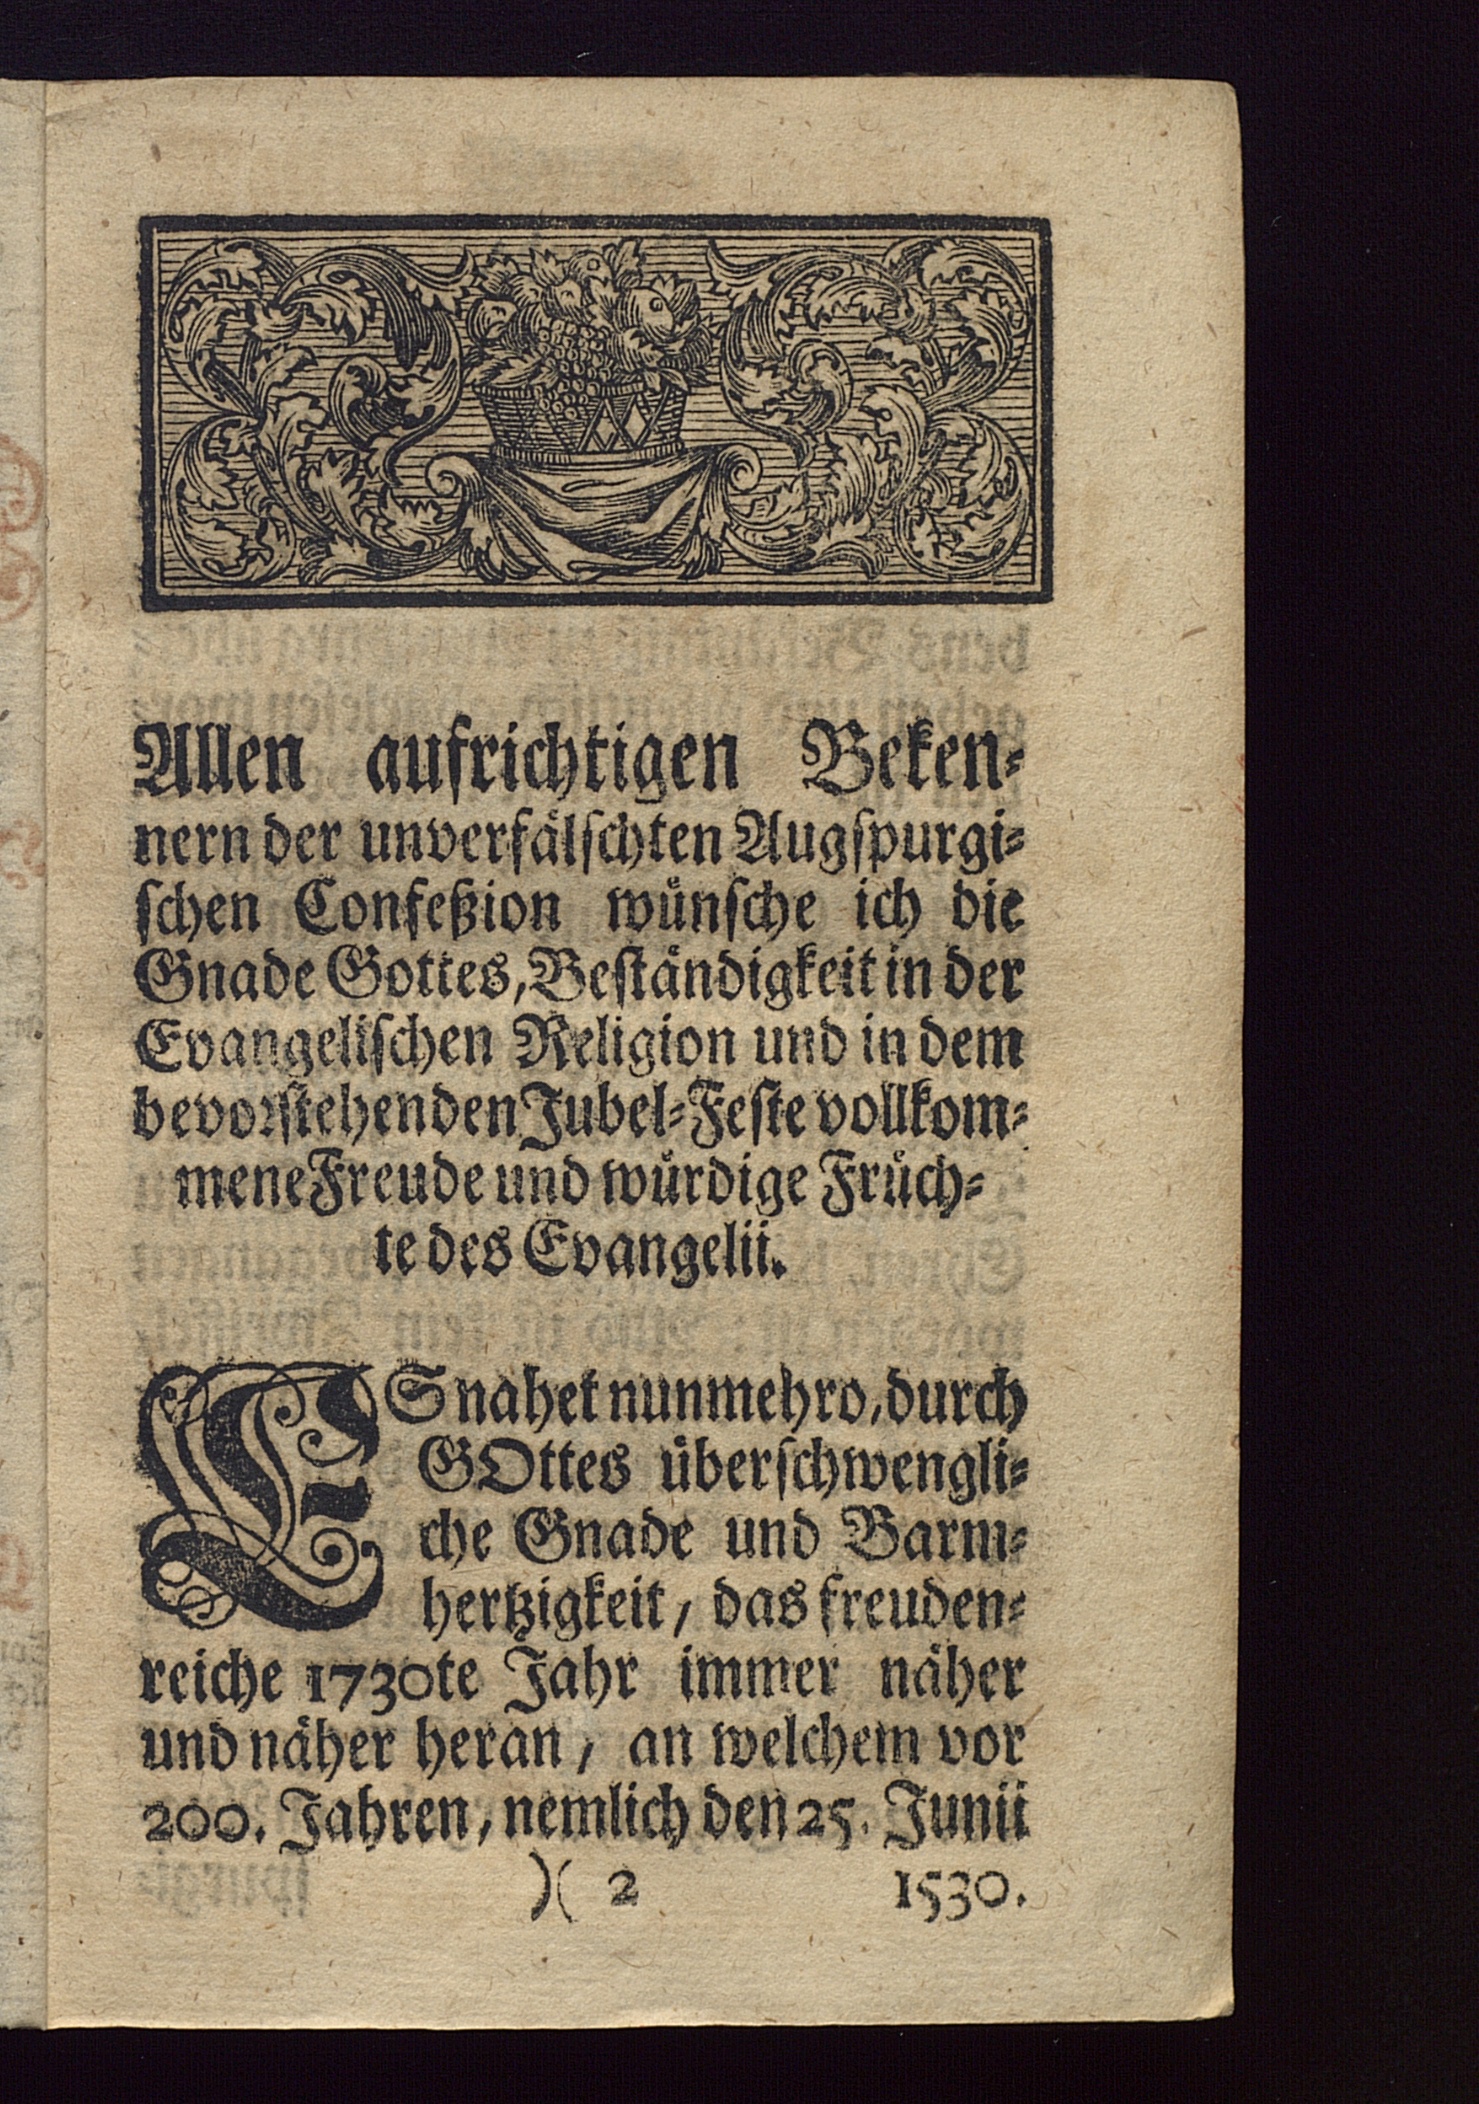 Allen aufrichtigen Beken-
nern der unverfälschten Augspurgi-
schen Confeßion wünsche ich die
Gnade Gottes, Beständigkeit in der
Evangelischen Religion und in dem
bevorstehenden Jubel-Feste vollkom-
mene Freude und würdige Früch-
te des Evangelii.
ES nahet nunmehro, durch
GOttes überschwengli-
che Gnade und Barm-
hertzigkeit, das freuden-
reiche 1730te Jahr immer näher
und näher heran, an welchem vor
200. Jahren, nemlich den 25. Junii
)( 2 1530.